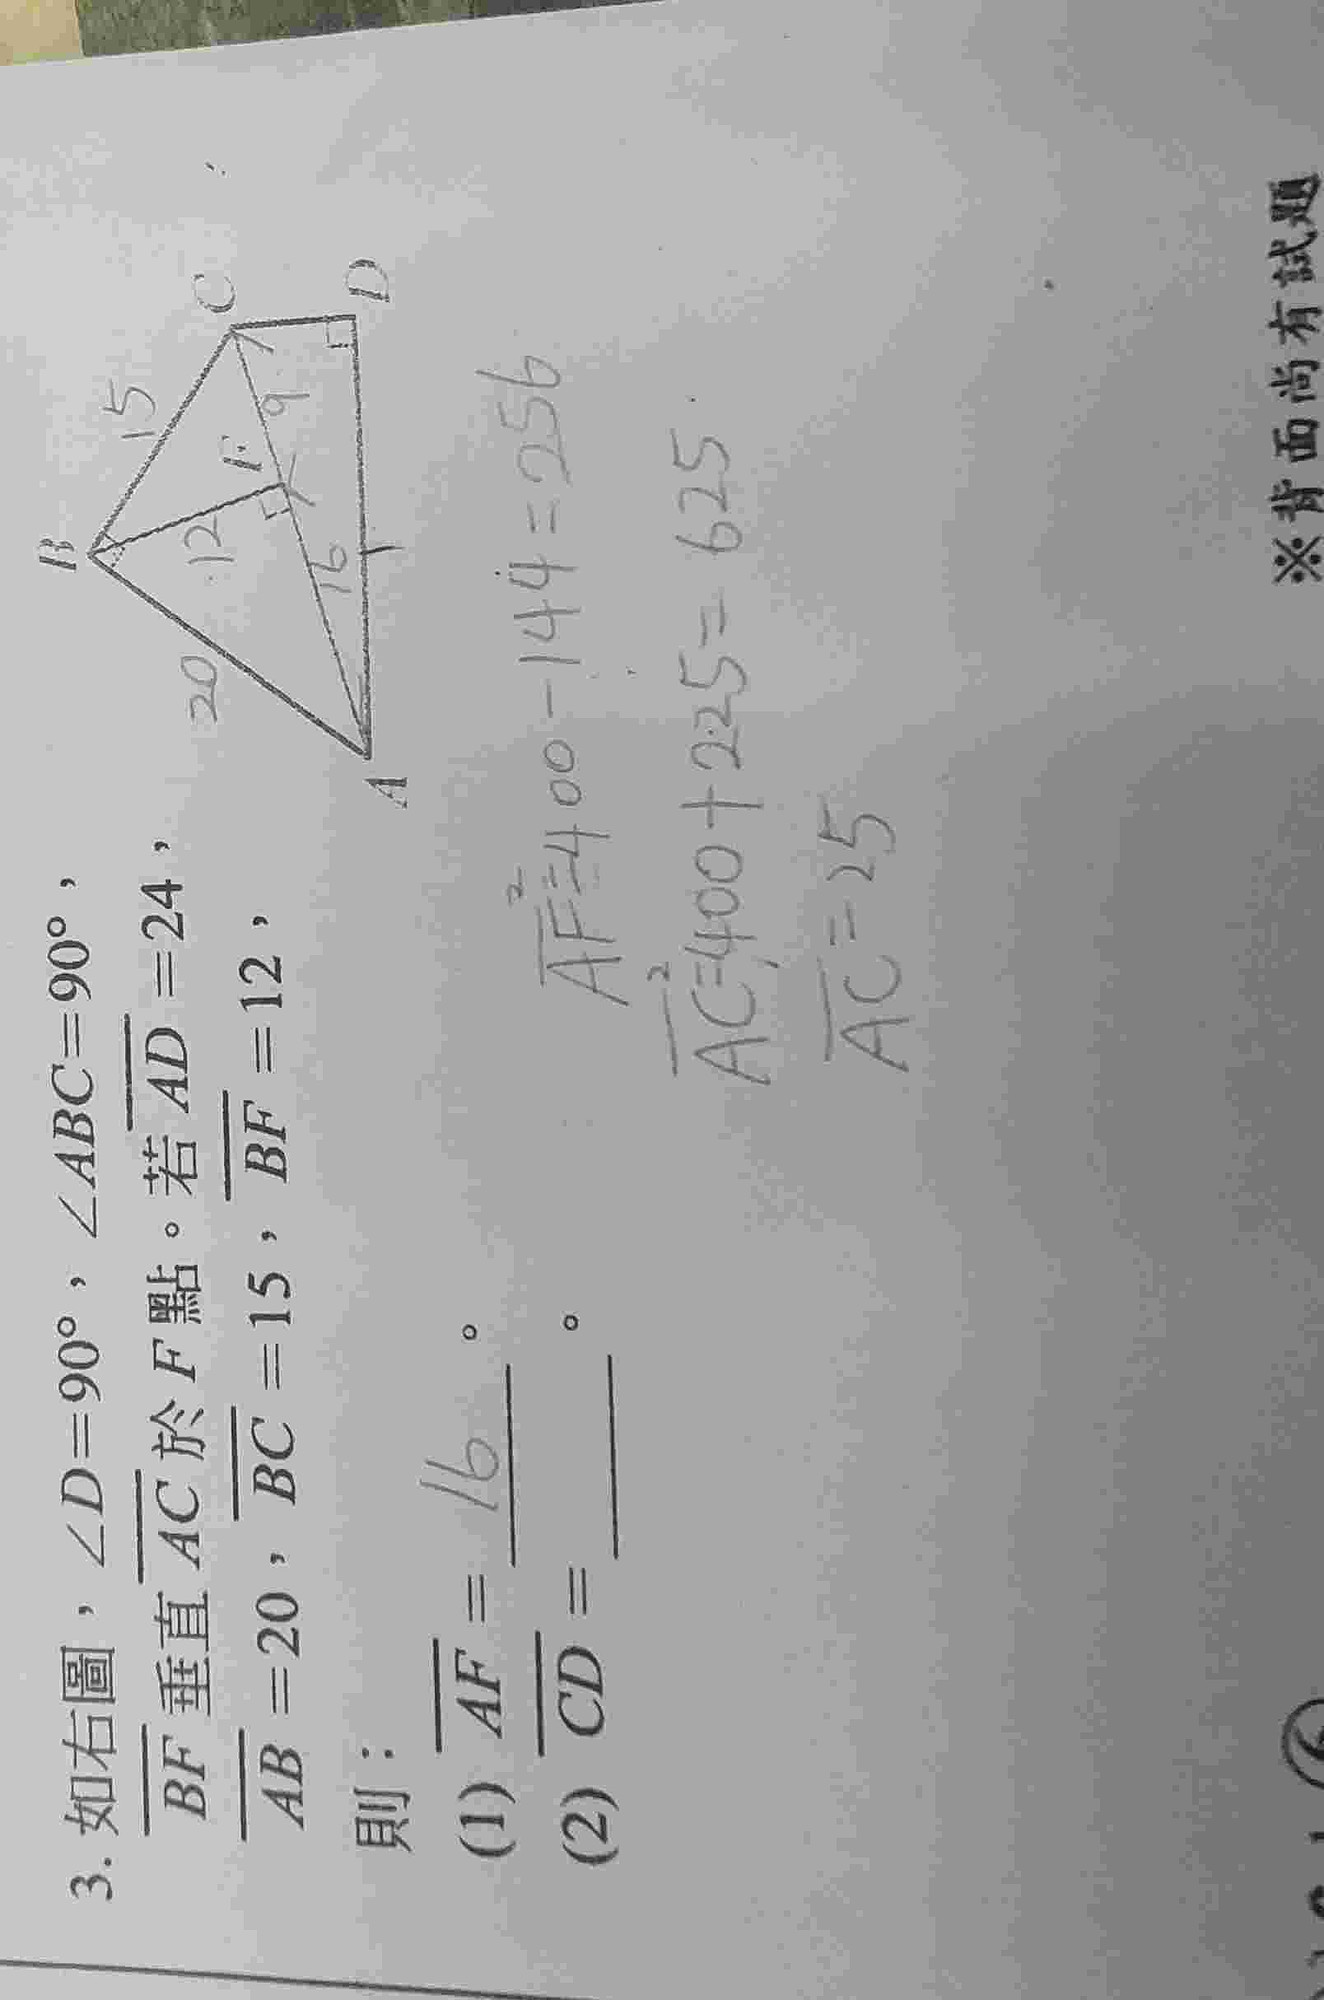 3. 如右圖，∠D=90°，∠ABC=90°，
BF 垂直 AC 於 F 點。若 AD =24，
AB =20，BC =15，BF =12，
則：
(1) AF = 16 。
(2) CD = 。
B
15
20
12
F
C
9
16
A
D
AF²=400-144=256
AC²=400+225=625
AC=25
※背面尚有試題